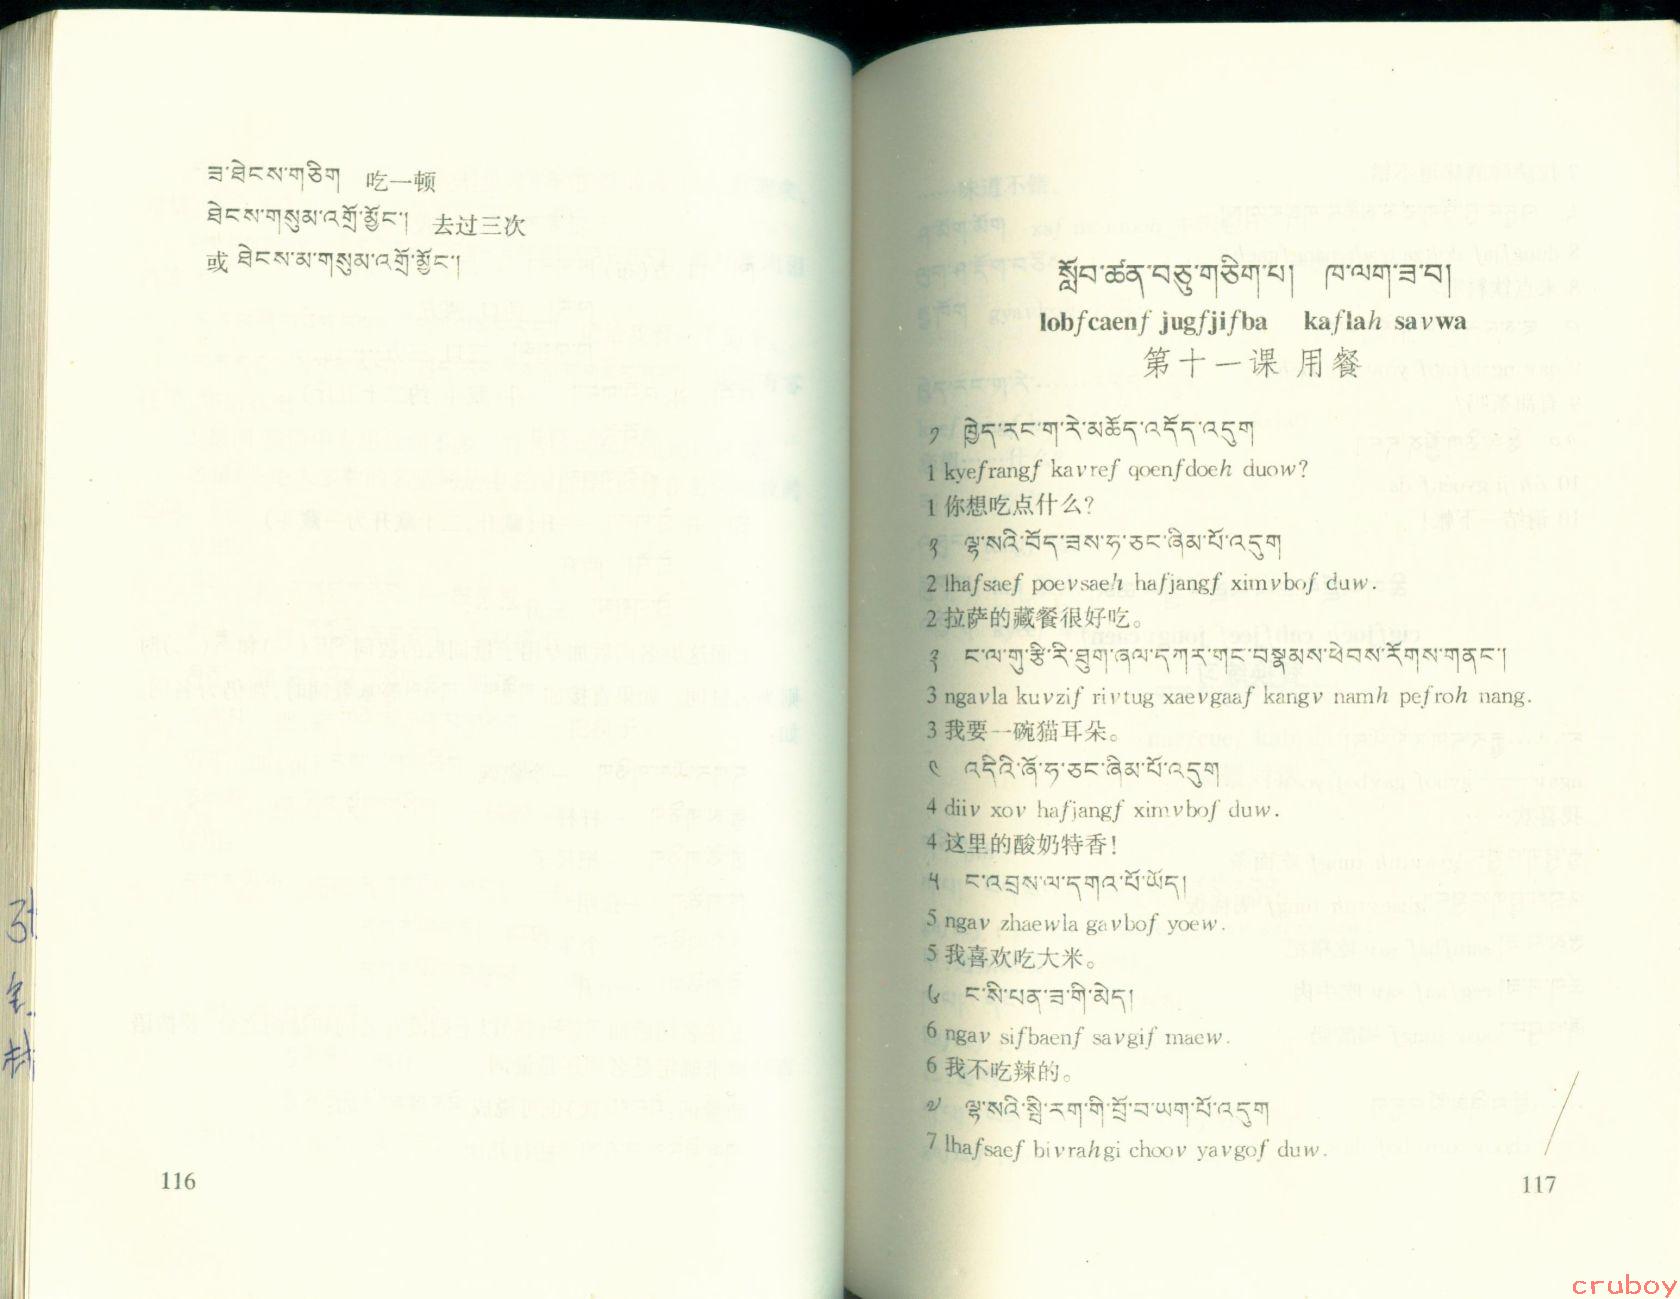 ཟ་ཐེངས་གཅིག 吃一顿
ཐེངས་གསུམ་འགྲོ་མྱོང་། 去过三次
或 ཐེངས་མ་གསུམ་འགྲོ་མྱོང་།
116
སློབ་ཚན་བཅུ་གཅིག་པ། ཁ་ལག་ཟ་བ།
lobfcaenf jugfjifba kaflah savwa
第十一课 用餐
༡ ཁྱེད་རང་ག་རེ་མཆོད་འདོད་འདུག
1 kyefrangf kavref qoenfdoeh duow?
1 你想吃点什么?
༢ ལྷ་སའི་བོད་ཟས་ཧ་ཅང་ཞིམ་པོ་འདུག
2 lhafsaef poevsaeh hafjangf ximvbof duw.
2 拉萨的藏餐很好吃。
༣ ང་ལ་གུ་རྩི་རི་ཐུག་ཞལ་དཀར་གང་བསྣམས་ཕེབས་རོགས་གནང་།
3 ngavla kuvzif rivtug xaevgaaf kangv namh pefroh nang.
3 我要一碗猫耳朵。
༤ འདིའི་ཞོ་ཧ་ཅང་ཞིམ་པོ་འདུག
4 diiv xov hafjangf ximvbof duw.
4 这里的酸奶特香!
༥ ང་འབྲས་ལ་དགའ་པོ་ཡོད།
5 ngav zhaewla gavbof yoew.
5 我喜欢吃大米。
༦ ང་སི་པན་ཟ་གི་མེད།
6 ngav sifbaenf savgif maew.
6 我不吃辣的。
༧ ལྷ་སའི་སྤི་རག་གི་བྲོ་བ་ཡག་པོ་འདུག
7 lhafsaef bivrahgi choov yavgof duw.
117
cruboy